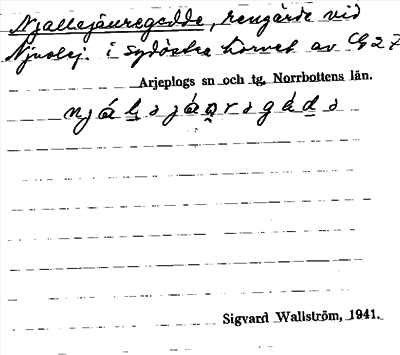 Njallejåuregedde, rengärde vid
Njuolej. i sydöstra hörnet av G 27
Arjeplogs sn och tg, Norrbottens län.
Sigvard Wallström, 1941.